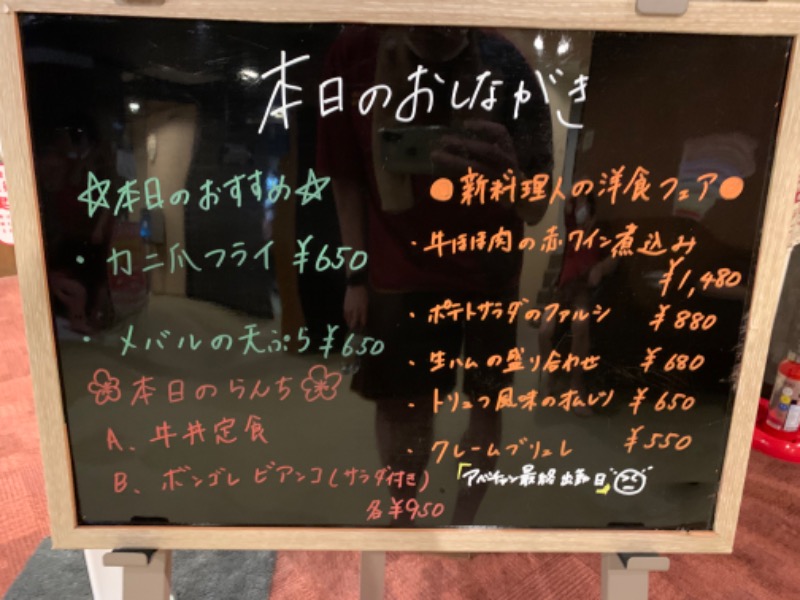 本日のおしながき
☆本日のおすすめ☆
・カニ爪フライ ¥650
・メバルの天ぷら ¥650
本日のらんち
A、牛丼定食
B、ボンゴレ ビアンコ(サラダ付き)
各¥950
●新料理人の洋食フェア●
・牛ほほ肉の赤ワイン煮込み
¥1,480
・ポテトサラダのファルシ ¥880
・生ハムの盛り合わせ ¥680
・トリュフ風味のオムレツ ¥650
・クレームブリュレ ¥550
「アベチャン最終出勤日」